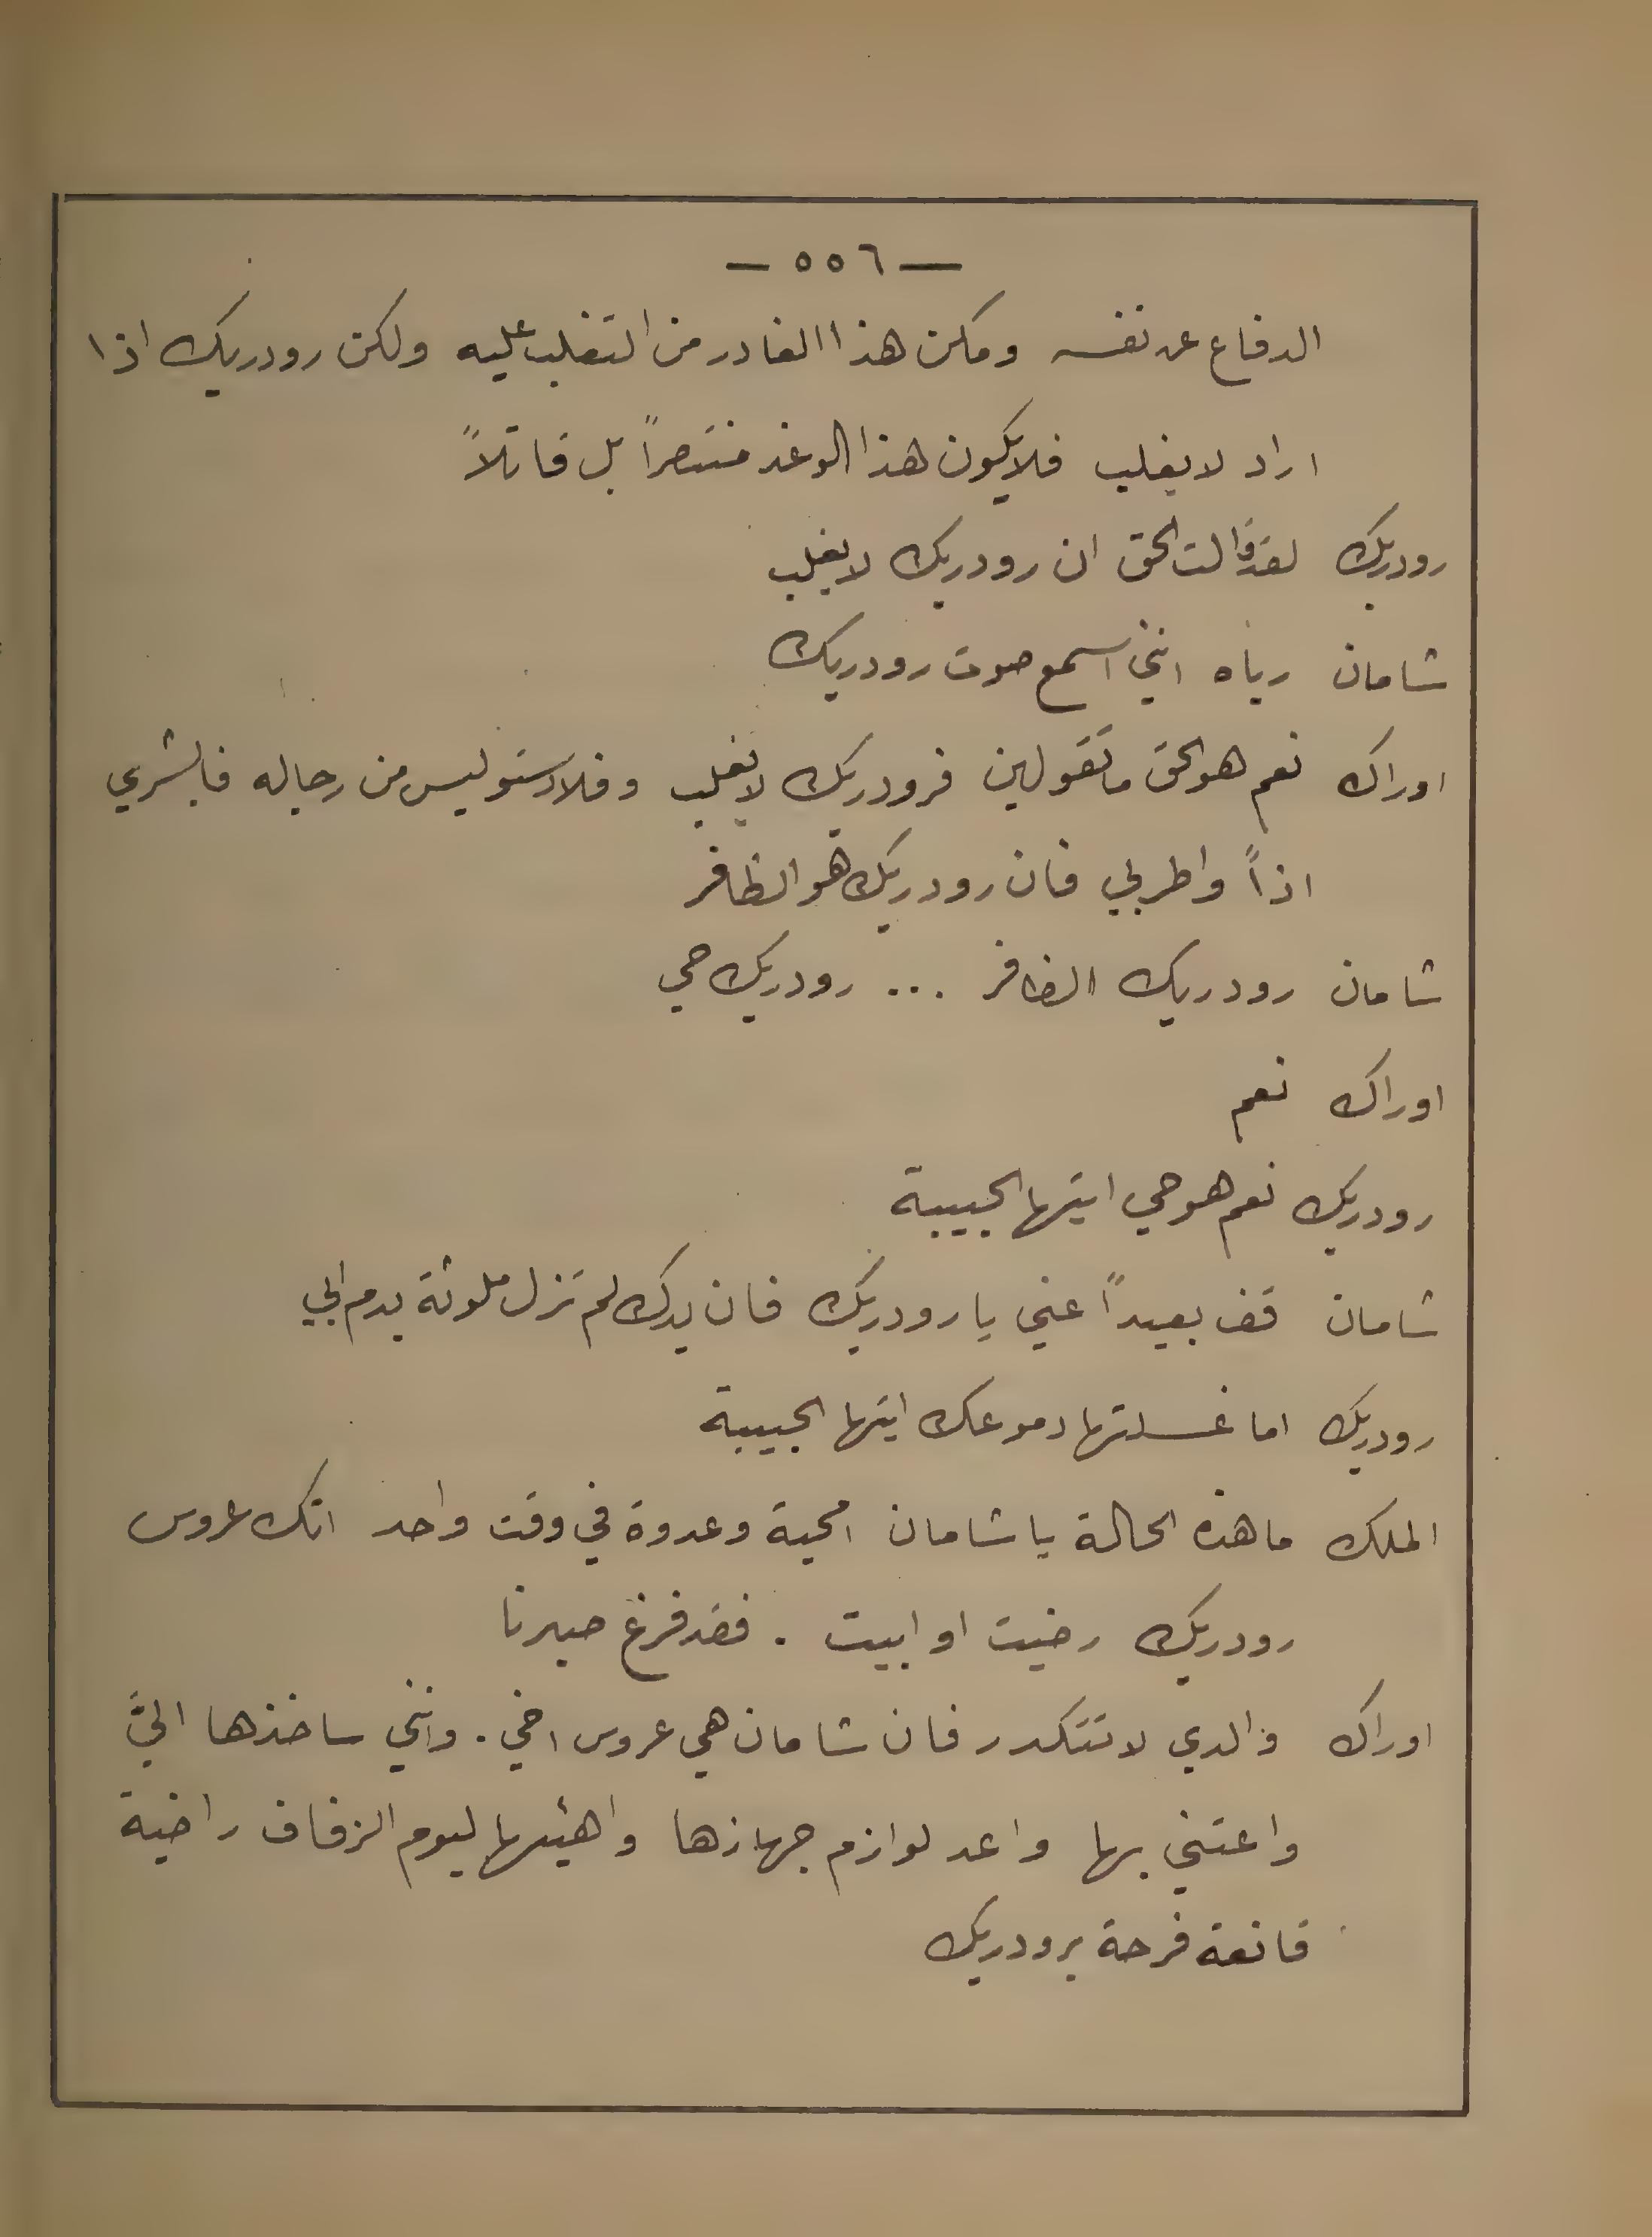 — ٥٥٦ —
الدفاع عن نفسه ومكن هذا الغادر من التغلب عليه ولكن رودريك اذا
اراد لا يغلب فلا يكون هذا الوغد منتصراً بل قاتلاً
رودريك لقد قالت الحق ان رودريك لا يغلب
شامان رباه انني اسمع صوت رودريك
اوراك نعم هو الحق ما تقولين فرودريك لا يغلب وفلادستو ليس من رجاله فابشري
اذاً واطربي فان رودريك هو الظافر
شامان رودريك الظافر ... رودريك حي
اوراك نعم
رودريك نعم هو حي ايتها الحبيبة
شامان قف بعيداً عني يا رودريك فان يدك لم تزل ملوثة بدم ابي
رودريك اما غسلتها دموعك ايتها الحبيبة
الملك ما هذه الحالة يا شامان امحبة وعدوة في وقت واحد انك عروس
رودريك رضيت او ابيت . فقد فرغ صبرنا
اوراك والدي لا تتكدر فان شامان هي عروس اخي . وانني ساخذها اليَّ
واعتني بها واعد لوازم جهازها واهيئها ليوم الزفاف راضية
قانعة فرحة برودريك